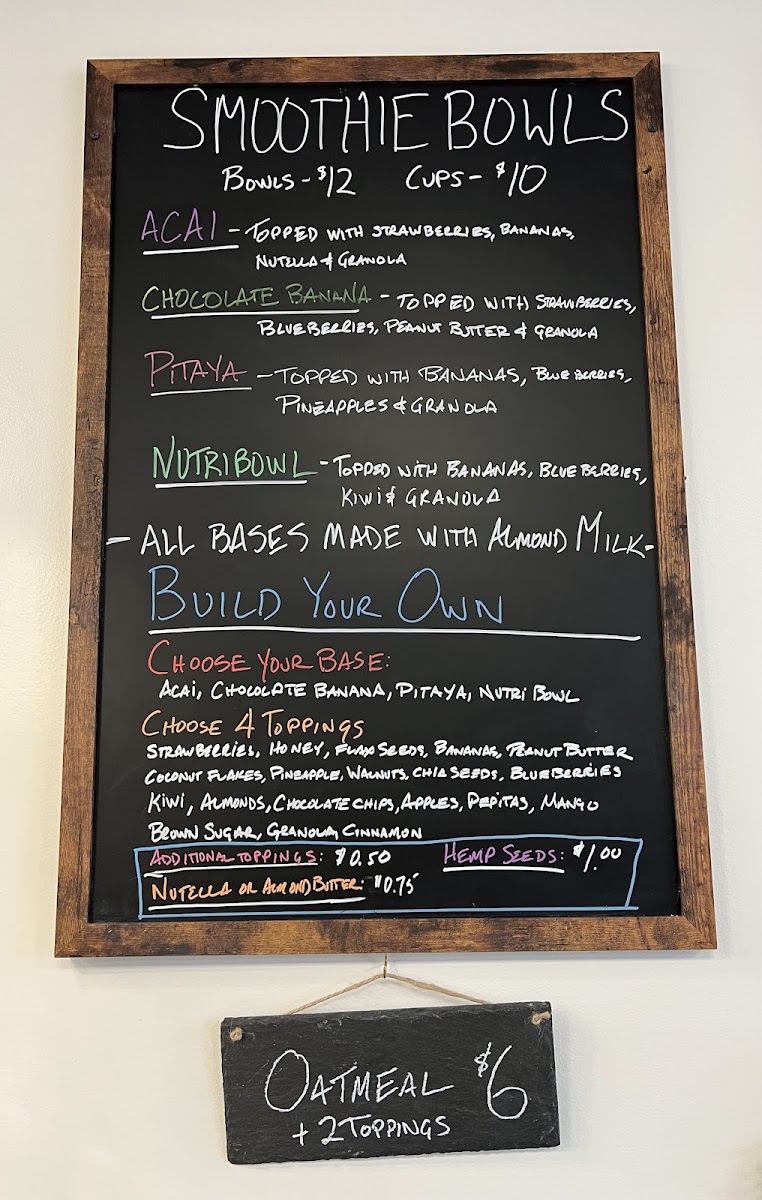 SMOOTHIE BOWLS
BOWLS - $12 CUPS - $10
ACAI - TOPPED WITH STRAWBERRIES, BANANAS,
NUTELLA & GRANOLA
CHOCOLATE BANANA - TOPPED WITH STRAWBERRIES,
BLUEBERRIES, PEANUT BUTTER & GRANOLA
PITAYA - TOPPED WITH BANANAS, BLUEBERRIES,
PINEAPPLES & GRANOLA
NUTRIBOWL - TOPPED WITH BANANAS, BLUEBERRIES,
KIWI & GRANOLA
- ALL BASES MADE WITH ALMOND MILK -
BUILD YOUR OWN
CHOOSE YOUR BASE:
ACAI, CHOCOLATE BANANA, PITAYA, NUTRI BOWL
CHOOSE 4 TOPPINGS
STRAWBERRIES, HONEY, FLAX SEEDS, BANANAS, PEANUT BUTTER
COCONUT FLAKES, PINEAPPLE, WALNUTS, CHIA SEEDS, BLUEBERRIES
KIWI, ALMONDS, CHOCOLATE CHIPS, APPLES, PEPITAS, MANGO
BROWN SUGAR, GRANOLA, CINNAMON
ADDITIONAL TOPPINGS: $0.50 HEMP SEEDS: $1.00
NUTELLA OR ALMOND BUTTER: $0.75
OATMEAL $6
+ 2 TOPPINGS